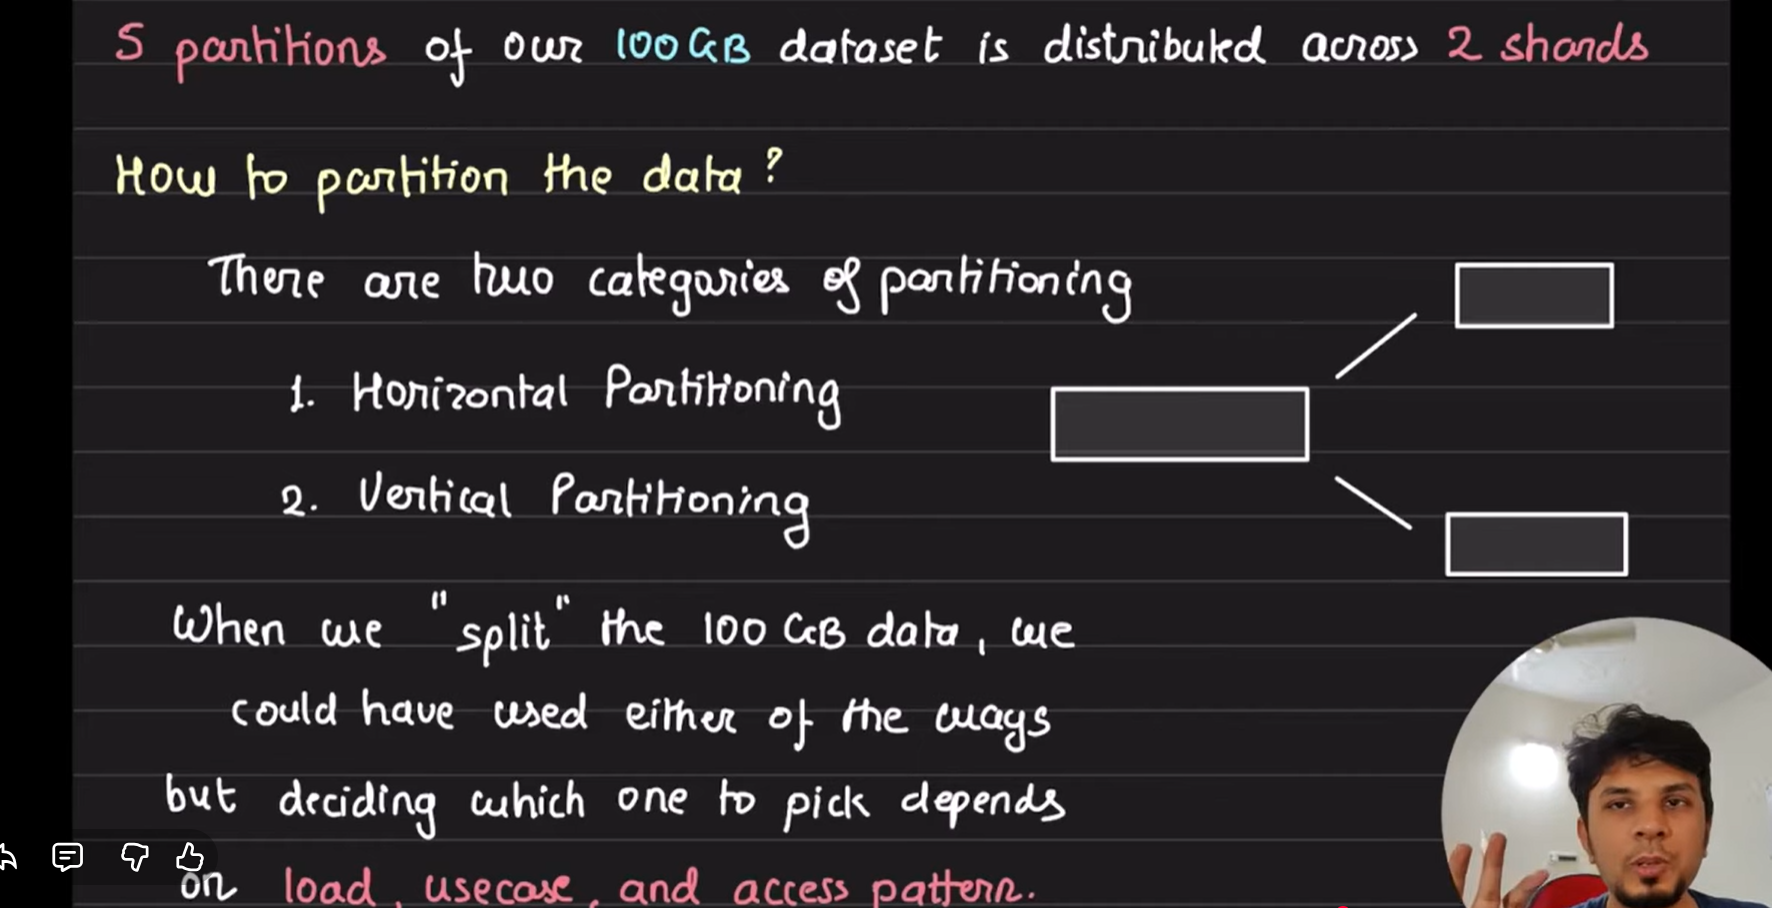 5 partitions of our 100GB dataset is distributed across 2 shards
How to partition the data?
There are two categories of partitioning
1. Horizontal Partitioning
2. Vertical Partitioning
When we "split" the 100 GB data, we
could have used either of the ways
but deciding which one to pick depends
on load, usecase, and access pattern.